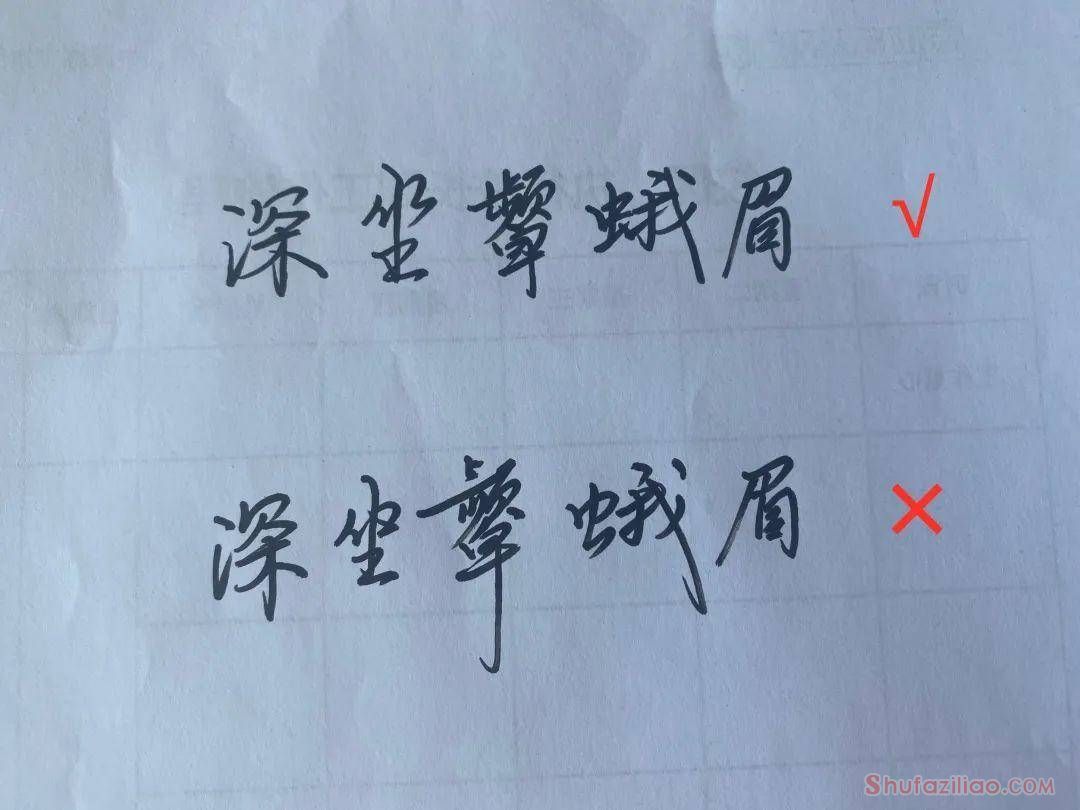 深坐颦蛾眉 √
深坐颦蛾眉 ×
Shufaziliao.com